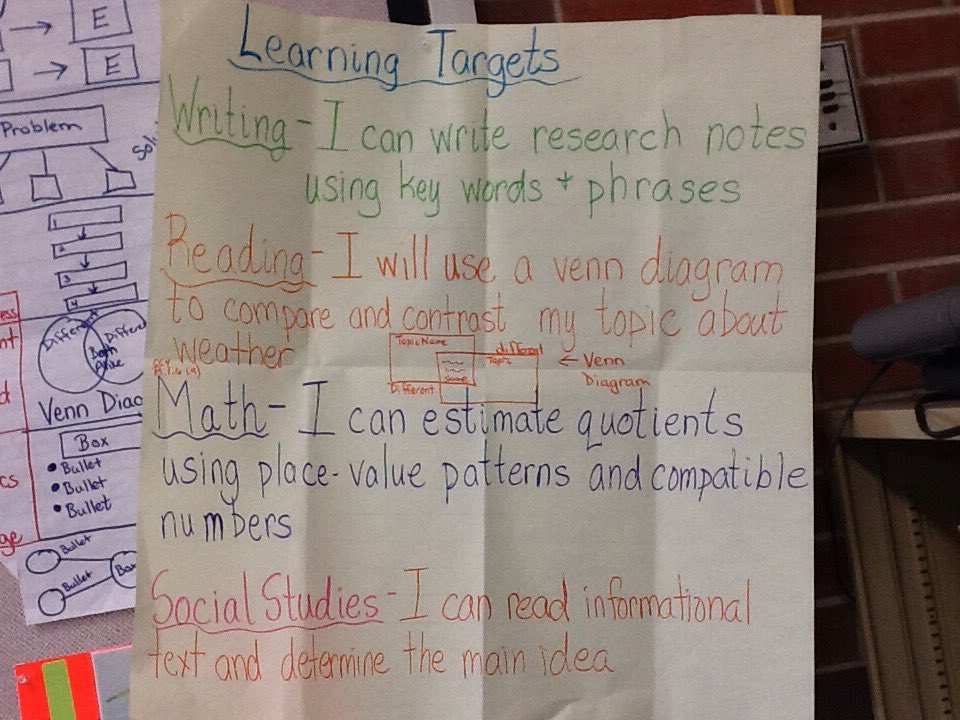 Learning Targets
Writing - I can write research notes
using key words + phrases
Reading - I will use a venn diagram
to compare and contrast my topic about
weather
Topic Name
different
Topic
Same
Different
← Venn
Diagram
Math - I can estimate quotients
using place-value patterns and compatible
numbers
Social Studies - I can read informational
text and determine the main idea
E
E
Problem
1
2
3
4
Different
Both
Venn Diag
Box
• Bullet
• Bullet
• Bullet
Bullet
Bullet